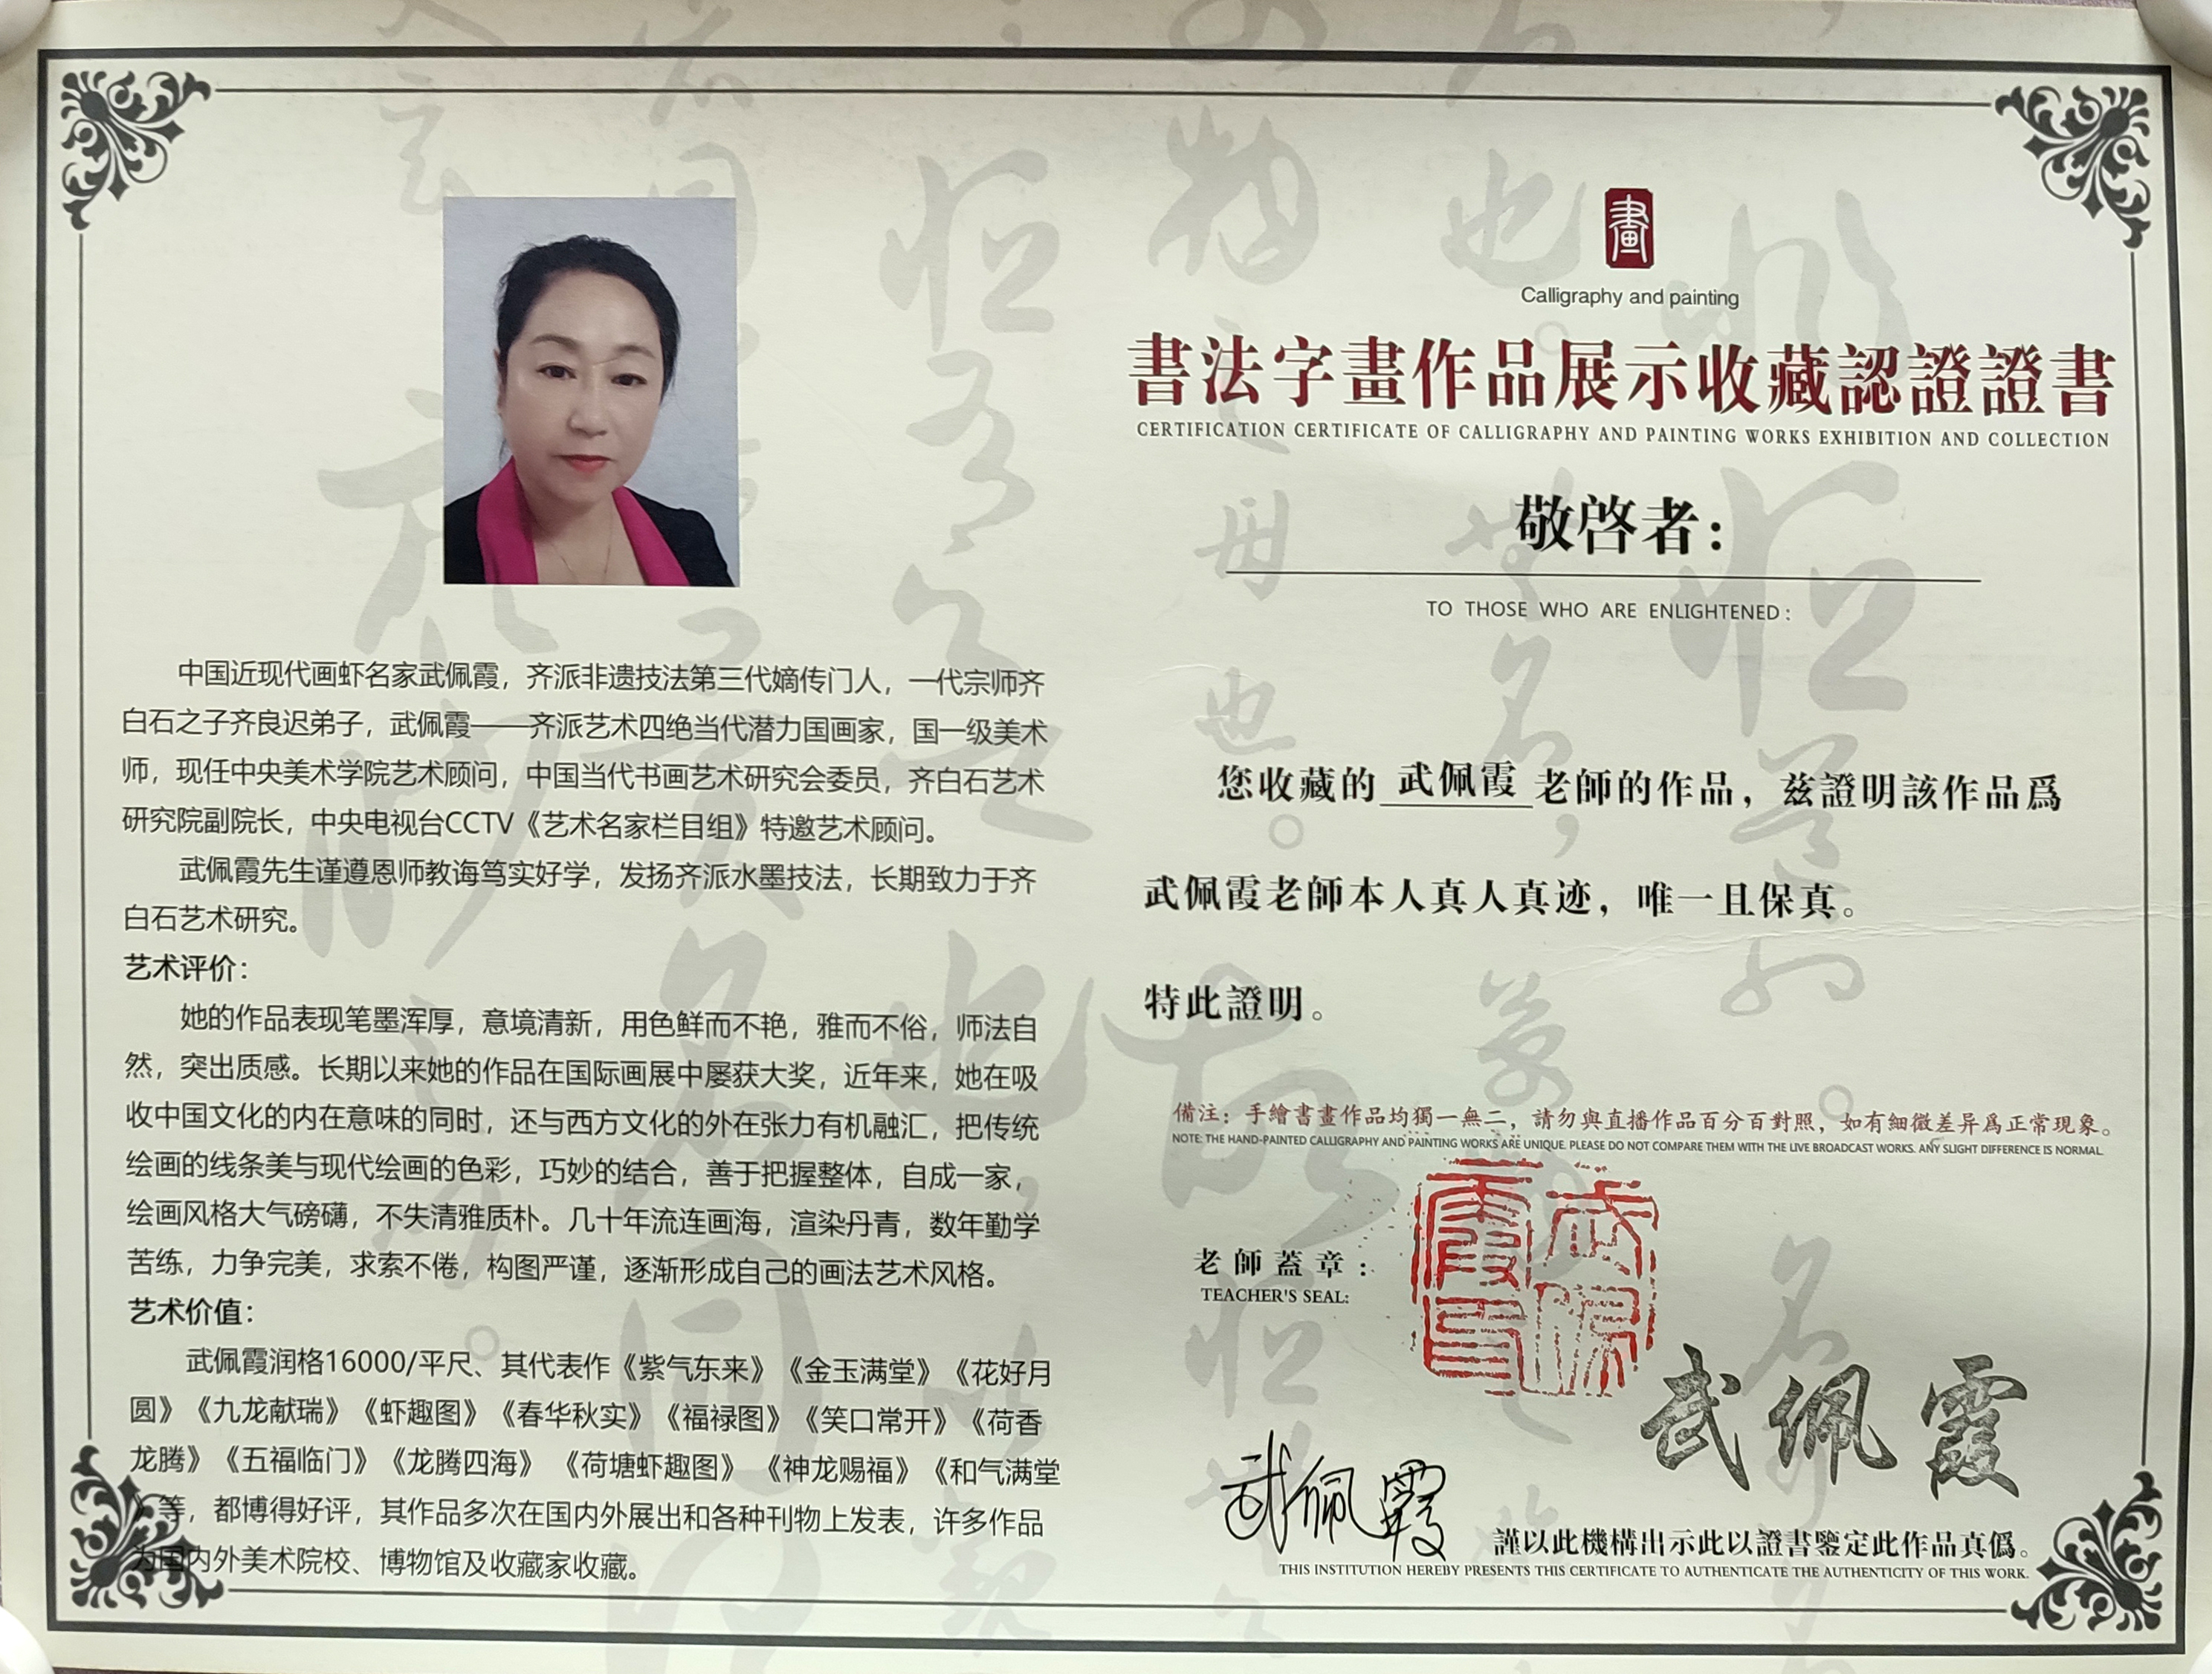 中国近现代画虾名家武佩霞，齐派非遗技法第三代嫡传门人，一代宗师齐
白石之子齐良迟弟子，武佩霞——齐派艺术四绝当代潜力国画家，国一级美术
师，现任中央美术学院艺术顾问，中国当代书画艺术研究会委员，齐白石艺术
研究院副院长，中央电视台CCTV《艺术名家栏目组》特邀艺术顾问。
武佩霞先生谨遵恩师教诲笃实好学，发扬齐派水墨技法，长期致力于齐
白石艺术研究。
艺术评价：
她的作品表现笔墨浑厚，意境清新，用色鲜而不艳，雅而不俗，师法自
然，突出质感。长期以来她的作品在国际画展中屡获大奖，近年来，她在吸
收中国文化的内在意味的同时，还与西方文化的外在张力有机融汇，把传统
绘画的线条美与现代绘画的色彩，巧妙的结合，善于把握整体，自成一家，
绘画风格大气磅礴，不失清雅质朴。几十年流连画海，渲染丹青，数年勤学
苦练，力争完美，求索不倦，构图严谨，逐渐形成自己的画法艺术风格。
艺术价值：
武佩霞润格16000/平尺、其代表作《紫气东来》《金玉满堂》《花好月
圆》《九龙献瑞》《虾趣图》《春华秋实》《福禄图》《笑口常开》《荷香
龙腾》《五福临门》《龙腾四海》《荷塘虾趣图》《神龙赐福》《和气满堂
》等，都博得好评，其作品多次在国内外展出和各种刊物上发表，许多作品
为国内外美术院校、博物馆及收藏家收藏。
畫
Calligraphy and painting
書法字畫作品展示收藏認證證書
CERTIFICATION CERTIFICATE OF CALLIGRAPHY AND PAINTING WORKS EXHIBITION AND COLLECTION
敬啓者：
TO THOSE WHO ARE ENLIGHTENED：
您收藏的 武佩霞 老師的作品，兹證明該作品爲
武佩霞老師本人真人真迹，唯一且保真。
特此證明。
備注：手繪書畫作品均獨一無二，請勿與直播作品百分百對照，如有細微差异爲正常現象。
NOTE: THE HAND-PAINTED CALLIGRAPHY AND PAINTING WORKS ARE UNIQUE. PLEASE DO NOT COMPARE THEM WITH THE LIVE BROADCAST WORKS. ANY SLIGHT DIFFERENCE IS NORMAL.
老師蓋章：
TEACHER'S SEAL:
武佩霞印
武佩霞
武佩霞
謹以此機構出示此以證書鑒定此作品真僞。
THIS INSTITUTION HEREBY PRESENTS THIS CERTIFICATE TO AUTHENTICATE THE AUTHENTICITY OF THIS WORK.